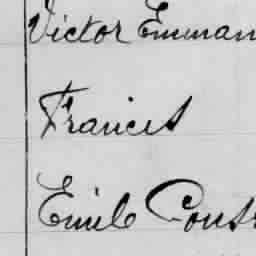 Victor Emman
Frances
Emile Cons